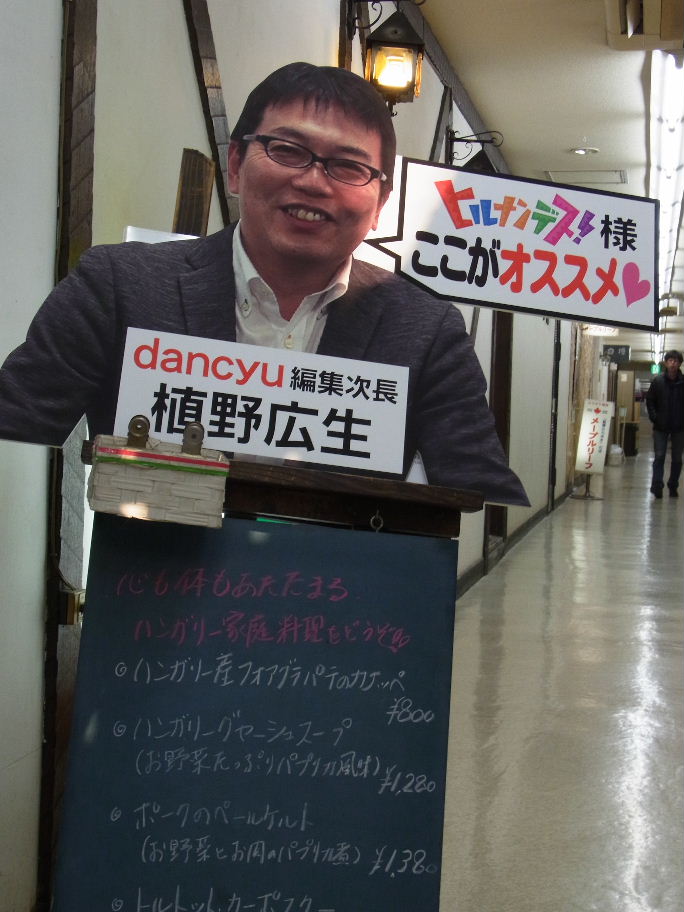 ヒルナンデス!様
ここがオススメ
dancyu 編集次長
植野広生
メープルリーフ
心も体もあたたまる
ハンガリー家庭料理をどうぞ
◎ハンガリー産フォアグラパテのカナッペ
¥800
◎ハンガリーグヤーシュスープ
(お野菜たっぷりパプリカ風味)
¥1,280
◎ポークのペールケルト
(お野菜とお肉のパプリカ煮) ¥1,380
◎トルトット カーポスター